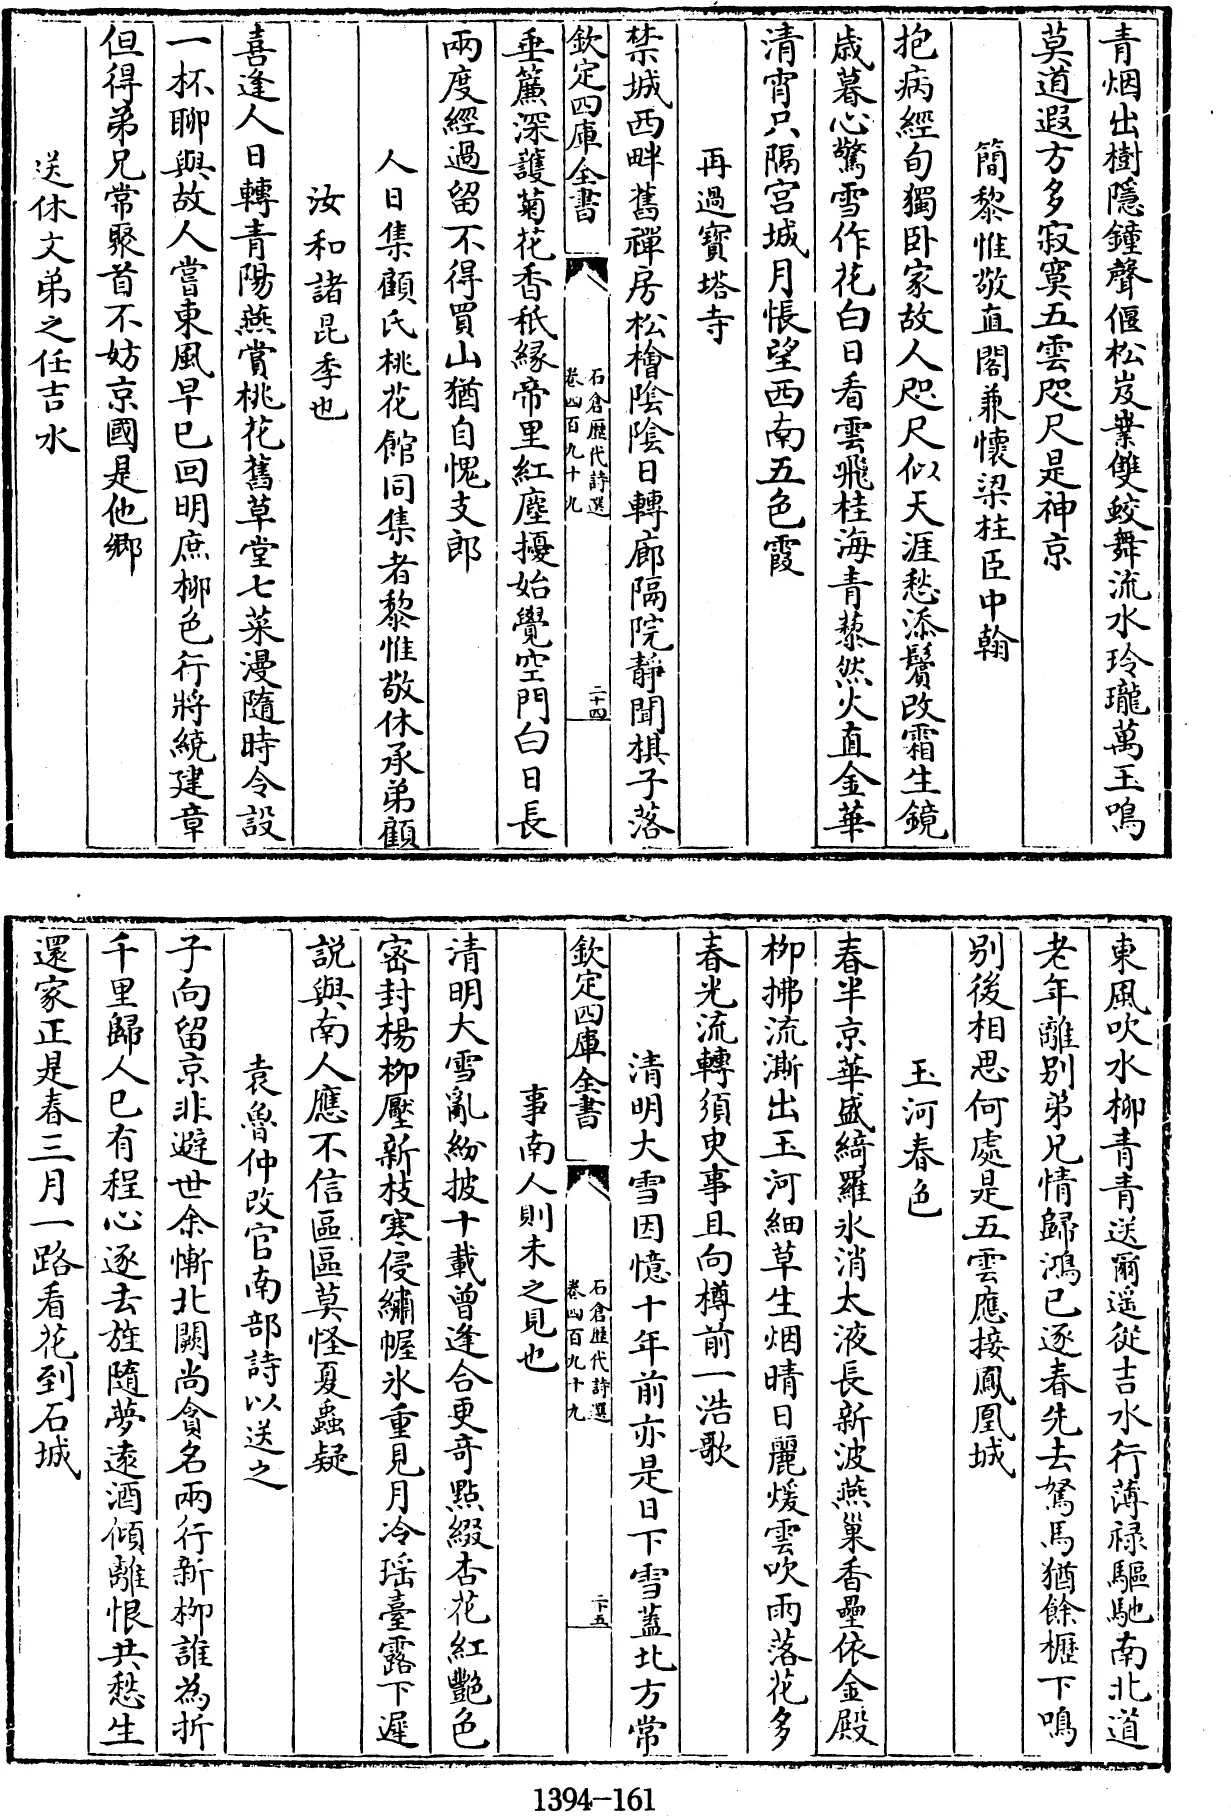 青烟出樹隱鐘聲偃松岌嶪雙蛟舞流水玲瓏萬玉鳴
莫道遐方多寂寞五雲咫尺是神京
簡黎惟敬直閣兼懷梁柱臣中翰
抱病經旬獨卧家故人咫尺似天涯愁添鬢改霜生鏡
歲暮心驚雪作花白日看雲飛桂海青藜然火直金華
清宵只隔宮城月悵望西南五色霞
再過寶塔寺
禁城西畔舊禪房松檜陰陰日轉廊隔院靜聞棋子落
欽定四庫全書
石倉歷代詩選
卷四百九十九
二十四
垂簾深護菊花香秖緣帝里紅塵擾始覺空門白日長
兩度經過留不得買山猶自愧支郎
人日集顧氏桃花館同集者黎惟敬休承弟顧
汝和諸昆季也
喜逢人日轉青陽燕賞桃花舊草堂七菜漫隨時令設
一杯聊與故人嘗東風早已回明庶柳色行將繞建章
但得弟兄常聚首不妨京國是他鄉
送休文弟之任吉水
東風吹水柳青青送爾遥從吉水行薄禄驅馳南北道
老年離别弟兄情歸鴻已逐春先去駑馬猶餘櫪下鳴
别後相思何處是五雲應接鳳凰城
玉河春色
春半京華盛綺羅氷消太液長新波燕巢香壘依金殿
柳拂流澌出玉河細草生烟晴日麗煖雲吹雨落花多
春光流轉須臾事且向樽前一浩歌
清明大雪因憶十年前亦是日下雪蓋北方常
欽定四庫全書
石倉歷代詩選
卷四百九十九
二十五
事南人則未之見也
清明大雪亂紛披十載曾逢合更奇點綴杏花紅艷色
密封楊柳壓新枝寒侵繡幄氷重見月冷瑶臺露下遲
説與南人應不信區區莫怪夏蟲疑
袁魯仲改官南部詩以送之
子向留京非避世余慚北闕尚貪名兩行新柳誰為折
千里歸人已有程心逐去旌隨夢遠酒傾離恨共愁生
還家正是春三月一路看花到石城
1394—161